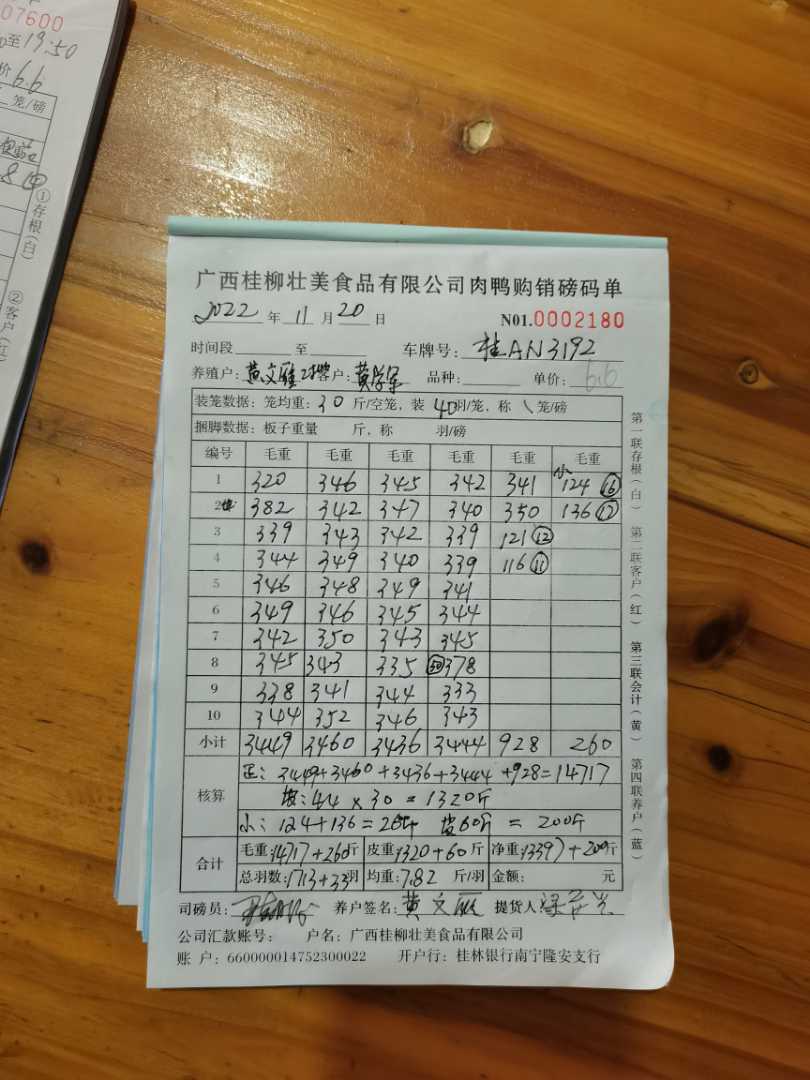 07600
至19:50
价 6.6
笼/磅
①存根(白)
②客户(红)
广西桂柳壮美食品有限公司肉鸭购销磅码单
2022 年 11 月 20 日 N01.0002180
时间段 至 车牌号: 桂AN3192
养殖户: 黄文雁 客户: 黄学军 品种: 单价: 6.6
装笼数据: 笼均重: 30 斤/空笼, 装 40 羽/笼, 称 1 笼/磅
捆脚数据: 板子重量 斤, 称 羽/磅
编号 毛重 毛重 毛重 毛重 毛重 毛重
1 320 346 345 342 341 小124 ⑯
2 382 342 347 340 350 136 ⑰
3 339 343 342 339 121 ⑫
4 344 349 340 339 116 ⑪
5 346 348 349 341
6 349 346 345 344
7 342 350 343 345
8 345 343 335 ㊿ 378
9 338 341 344 333
10 344 352 346 343
小计 3449 3460 3436 3444 928 260
核算 正: 3449+3460+3436+3444+928=14717
皮: 44×30=1320斤
小: 124+136=260斤 皮60斤 =200斤
合计 毛重:14717+260斤 皮重:1320+60斤 净重:13397+200斤
总羽数:1713+33羽 均重:7.82 斤/羽 金额: 元
司磅员: 养户签名: 黄文雁 提货人:
公司汇款账号: 户名: 广西桂柳壮美食品有限公司
账 户: 660000014752300022 开户行: 桂林银行南宁隆安支行
第一联存根(白) 第二联客户(红) 第三联会计(黄) 第四联养户(蓝)